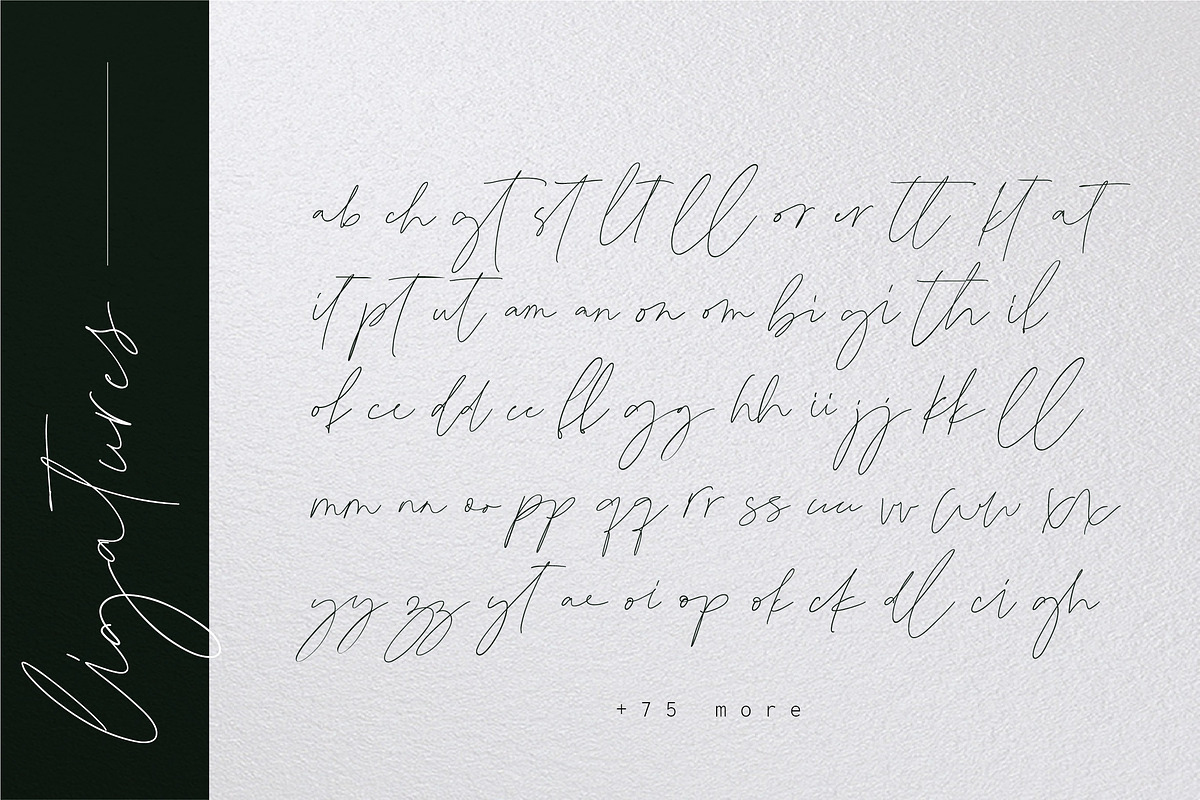 ligatures
ab ch gt st lt ll or er tt kt at
it pt ut am an on om bi gi th il
of cc dd ee ff gg hh ii jj kk ll
mm nn oo pp qq rr ss uu vv ww xx
yy zz yt ae oi op ok ck dl ci gh
+75 more